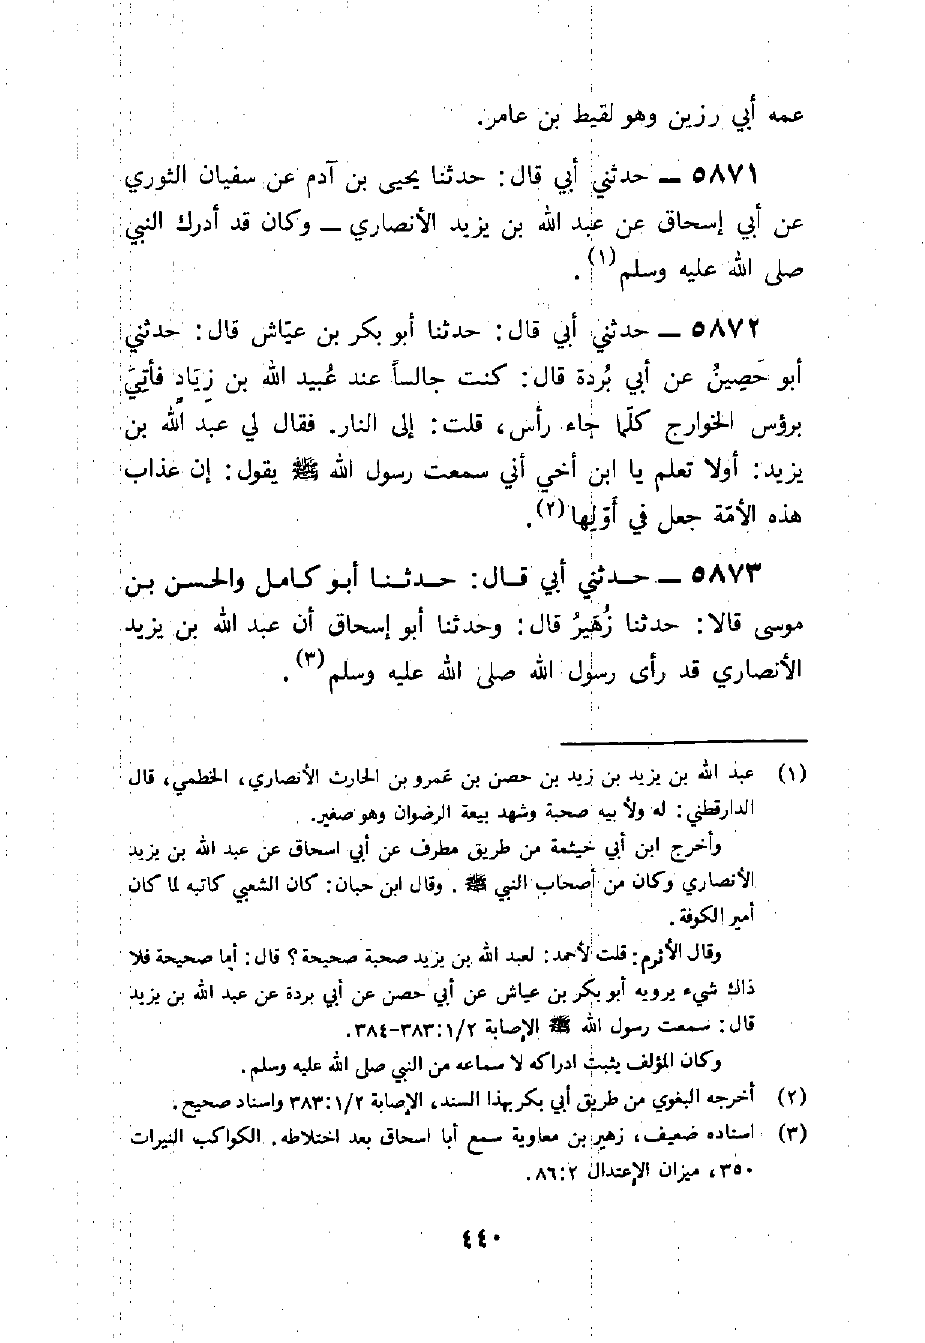 عمه أبي رزين وهو لقيط بن عامر.
٥٨٧١ ــ حدثني أبي قال: حدثنا يحيى بن آدم عن سفيان الثوري
عن أبي إسحاق عن عبد الله بن يزيد الأنصاري ــ وكان قد أدرك النبي
صلى الله عليه وسلم(١).
٥٨٧٢ ــ حدثني أبي قال: حدثنا أبو بكر بن عيّاش قال: حدثني
أبو حَصِينُ عن أبي بُردة قال: كنت جالساً عند عُبيد الله بن زِيَادٍ فأتِيَ
برؤس الخوارج كلّما جاء رأس، قلت: إلى النار. فقال لي عبد الله بن
يزيد: أولا تعلم يا ابن أخي أني سمعت رسول الله ﷺ يقول: إن عذاب
هذه الأمّة جعل في أوّلها(٢).
٥٨٧٣ ــ حدثني أبي قال: حدثنا أبو كامل والحسن بن
موسى قالا: حدثنا زُهَيرُ قال: وحدثنا أبو إسحاق أن عبد الله بن يزيد
الأنصاري قد رأى رسول الله صلى الله عليه وسلم(٣).
(١) عبد الله بن يزيد بن زيد بن حصن بن عمرو بن الحارث الأنصاري، الخطمي، قال
الدارقطني: له ولأبيه صحبة وشهد بيعة الرضوان وهو صغير.
وأخرج ابن أبي خيثمة من طريق مطرف عن أبي اسحاق عن عبد الله بن يزيد
الأنصاري وكان من أصحاب النبي ﷺ. وقال ابن حبان: كان الشعبي كاتبه لما كان
أمير الكوفة.
وقال الأثرم: قلت لأحمد: لعبد الله بن يزيد صحبة صحيحة؟ قال: أما صحيحة فلا
ذاك شيء يرويه أبو بكر بن عياش عن أبي حصن عن أبي بردة عن عبد الله بن يزيد
قال: سمعت رسول الله ﷺ الإصابة ٣٨٣:١/٢-٣٨٤.
وكان المؤلف يثبت ادراكه لا سماعه من النبي صلى الله عليه وسلم.
(٢) أخرجه البغوي من طريق أبي بكر بهذا السند، الإصابة ٣٨٣:١/٢ واسناد صحيح.
(٣) اسناده ضعيف، زهير بن معاوية سمع أبا اسحاق بعد اختلاطه. الكواكب النيرات
٣٥٠، ميزان الإعتدال ٨٦:٢.
٤٤٠